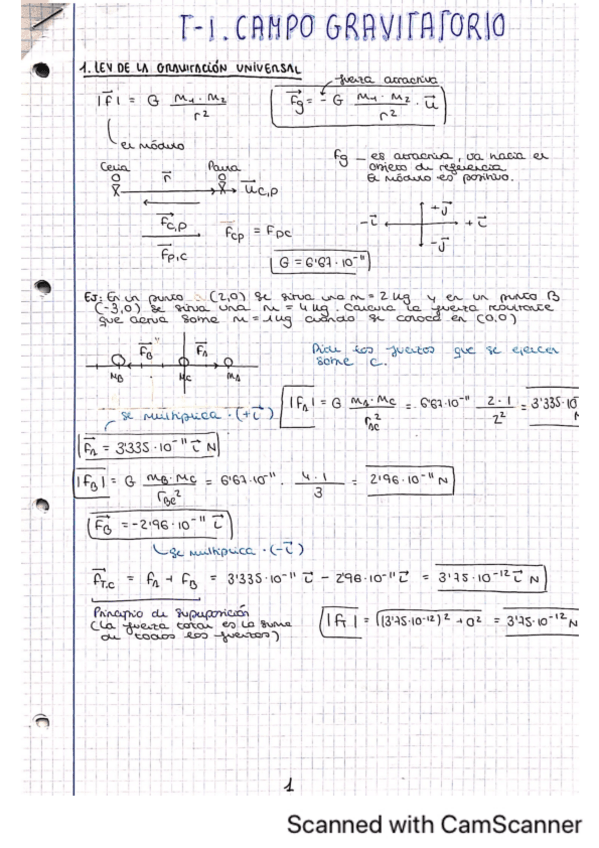 T-1. CAMPO GRAVITATORIO
1. LEY DE LA GRAVITACIÓN UNIVERSAL
fuerza atractiva
|F| = G M₁ · M₂ / r²
Fg = - G M₁ · M₂ / r² · u
el módulo
Fg – es atractiva, va hacia el
objeto de referencia
El módulo es positivo.
Celia
Paula
r
u C,P
F C,P
F P,C
F CP = F PC
+J
-ı
+ı
-J
G = 6'67 · 10⁻¹¹
EJ: En un punto (2,0) se situa una m = 2 kg y en un punto B
(-3,0) se situa una m = 4 kg. Calcula la fuerza resultante
que actua sobre m = 1 kg cuando se coloca en (0,0)
F B
F A
M B
M C
M A
Pide las fuerzas que se ejercen
sobre C.
|F A| = G M A · M C / r² = 6'67 · 10⁻¹¹ 2 · 1 / 2² = 3'335 · 10
se multiplica · (+ı)
F A = 3'335 · 10⁻¹¹ ı N
|F B| = G M B · M C / r BC² = 6'67 · 10⁻¹¹ · 4 · 1 / 3 = 2'96 · 10⁻¹¹ N
F B = -2'96 · 10⁻¹¹ ı
se multiplica · (-ı)
F T,C = F A + F B = 3'335 · 10⁻¹¹ ı - 2'96 · 10⁻¹¹ ı = 3'75 · 10⁻¹² ı N
Principio de superposición
(la fuerza total es la suma
de todas las fuerzas)
|F T| = √(3'75 · 10⁻¹²)² + 0² = 3'75 · 10⁻¹² N
1
Scanned with CamScanner